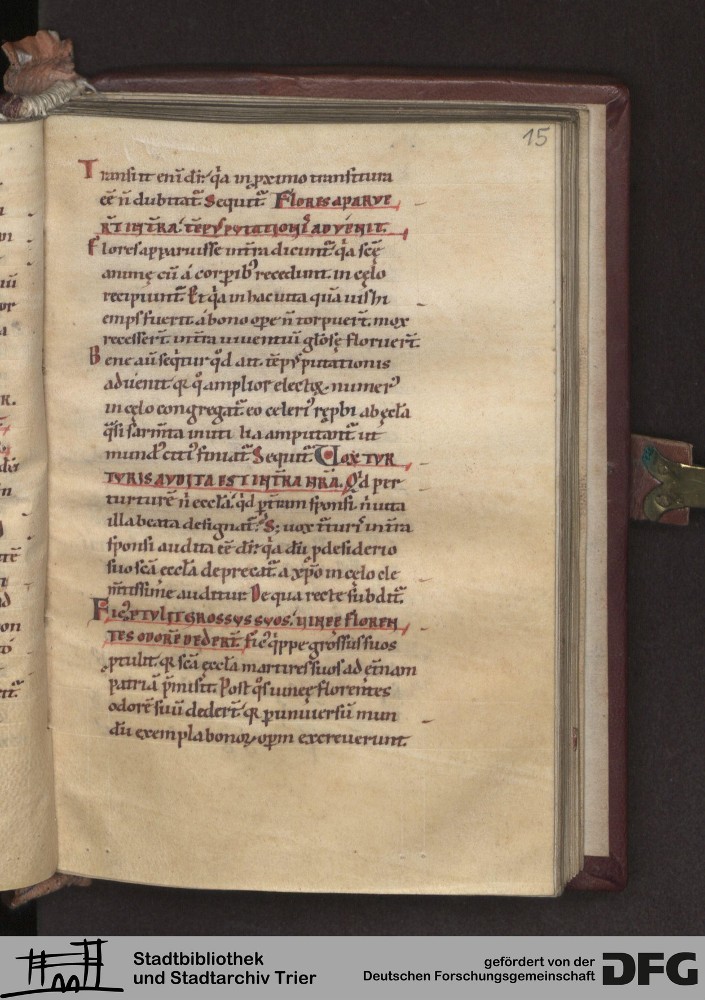 15
Transiit enī dr̄. q̇a in ꝓximo transitura
eē n̄ dubitat᷑. Sequit᷑. FLORES APARVE
RT̄ IN TRA. TĒPꝰ PVTATIONIS ADVENIT.
Flores apparuisse in t̄ra dicunt᷑. q̇a scę̄
animę cū á corꝑibꝰ recedunt. in cęlo
recipiunt᷑. Et q̇a in hac uita quā uiſhi
empſ fuerit á bono oꝑe n̄ torpuer̄t. mox
recesser̄t. in t̄ra uiuentiū gl̄ose floruer̄t.
Bene aū seq̇tur qḋ ait. tēpꝰ putationis
aduenit. q̇a q̇ amplior electoꝝ numerꝰ
in cęlo congregat᷑. eo celeriꝰ xp̄i ab eccl̄a
q̇si sarm̄ta inuti lia amputant᷑. ut
mundꝰ citiꝰ finiat᷑. Sequit᷑. VOX TVR
TVRIS AVDITA EST IN TRA NRA. Qḋ per
turturē n̄ eccl̄a. qḋ p̄triam sponsi. n̄ uita
illa beata designat᷑. S; uox t̄turis in t̄ra
sponsi audita eē dr̄. q̇a dū ꝓ desiderio
suo sc̄a eccl̄a deprecat᷑. a xp̄o in cęlo cle
m̄tissime auditur. De qua recte subdit᷑.
FICꝰ ꝓTVLIT GROSSVS SVOS. VINEE FLOREN
TES ODORĒ DEDERT̄. Ficꝰ q̇ppe grossus suos
ꝓtulit. q̇a sc̄a eccl̄a martires suos ad ęt̄nam
patriā p̄misit. Post q̇s uineę florentes
odorē suū deder̄t. q̇a ꝑ uniuersū mun
dū exempla bonoꝝ oꝑm excreuerunt.
Stadtbibliothek
und Stadtarchiv Trier
gefördert von der
Deutschen Forschungsgemeinschaft
DFG